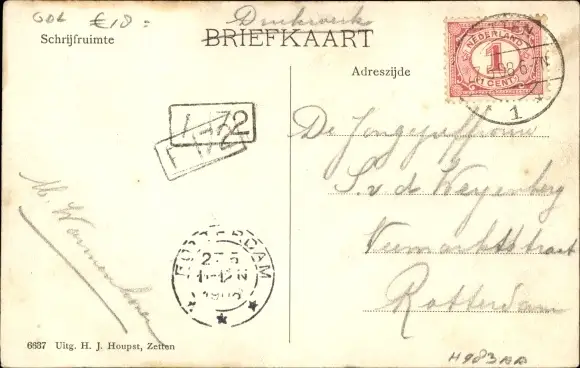 GDL €10=
Drukwerk
BRIEFKAART
Schrijfruimte
Adreszijde
NEDERLAND
1
CENT
6-7N
1
1-72
De Jongejuffrouw
S. v d Weyenberg
Rotterdam
ROTTERDAM
27 5
11-12N
1908
M.
6637 Uitg. H. J. Houpst, Zetten
H983AA